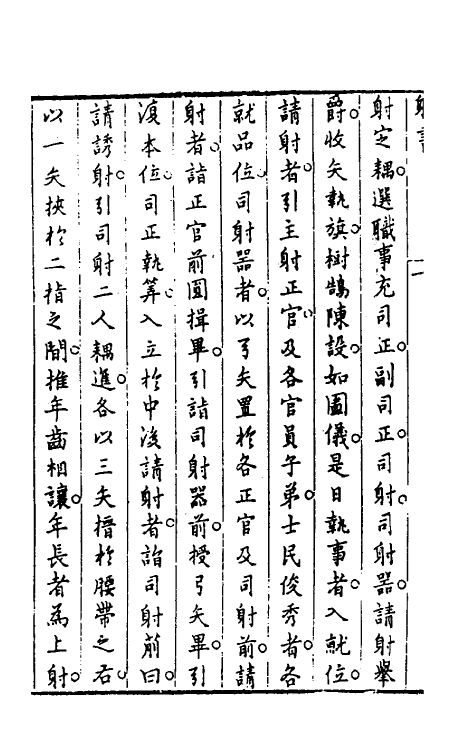 射定耦。選職事充司正。副司正。司射。司射器。請射舉
爵。收矢執旗。樹鵠陳設。如圖儀。是日執事者。入就位。
請射者。引主射正官。及各官員子弟。士民俊秀者。各
就品位。司射器者。以弓矢置於各正官及司射前。請
射者。詣正官前圓揖畢。引詣司射器前。授弓矢畢。引
復本位。司正執筭。入立於中。後請射者。詣司射前曰。
請誘射。引司射二人耦進。各以三矢搢於腰帶之右。
以一矢挾於二指之間。推年齒相讓。年長者為上射。